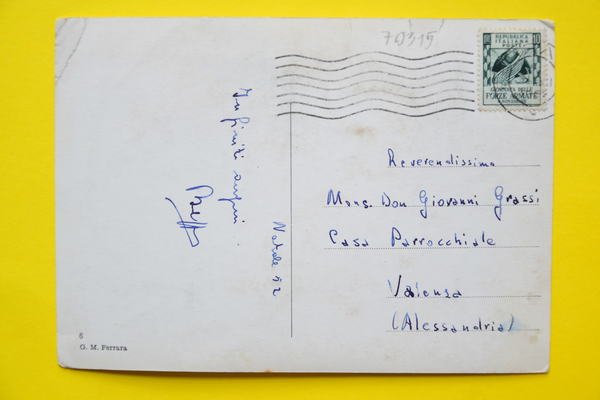 70315
REPUBBLICA
ITALIANA
POSTE
10
GIORNATA DELLE
FORZE ARMATE
Infiniti auguri
Natale 52
Reverendissimo
Mons. Don Giovanni Grassi
Casa Parrocchiale
Valenza
(Alessandria)
6
G. M. Ferrara